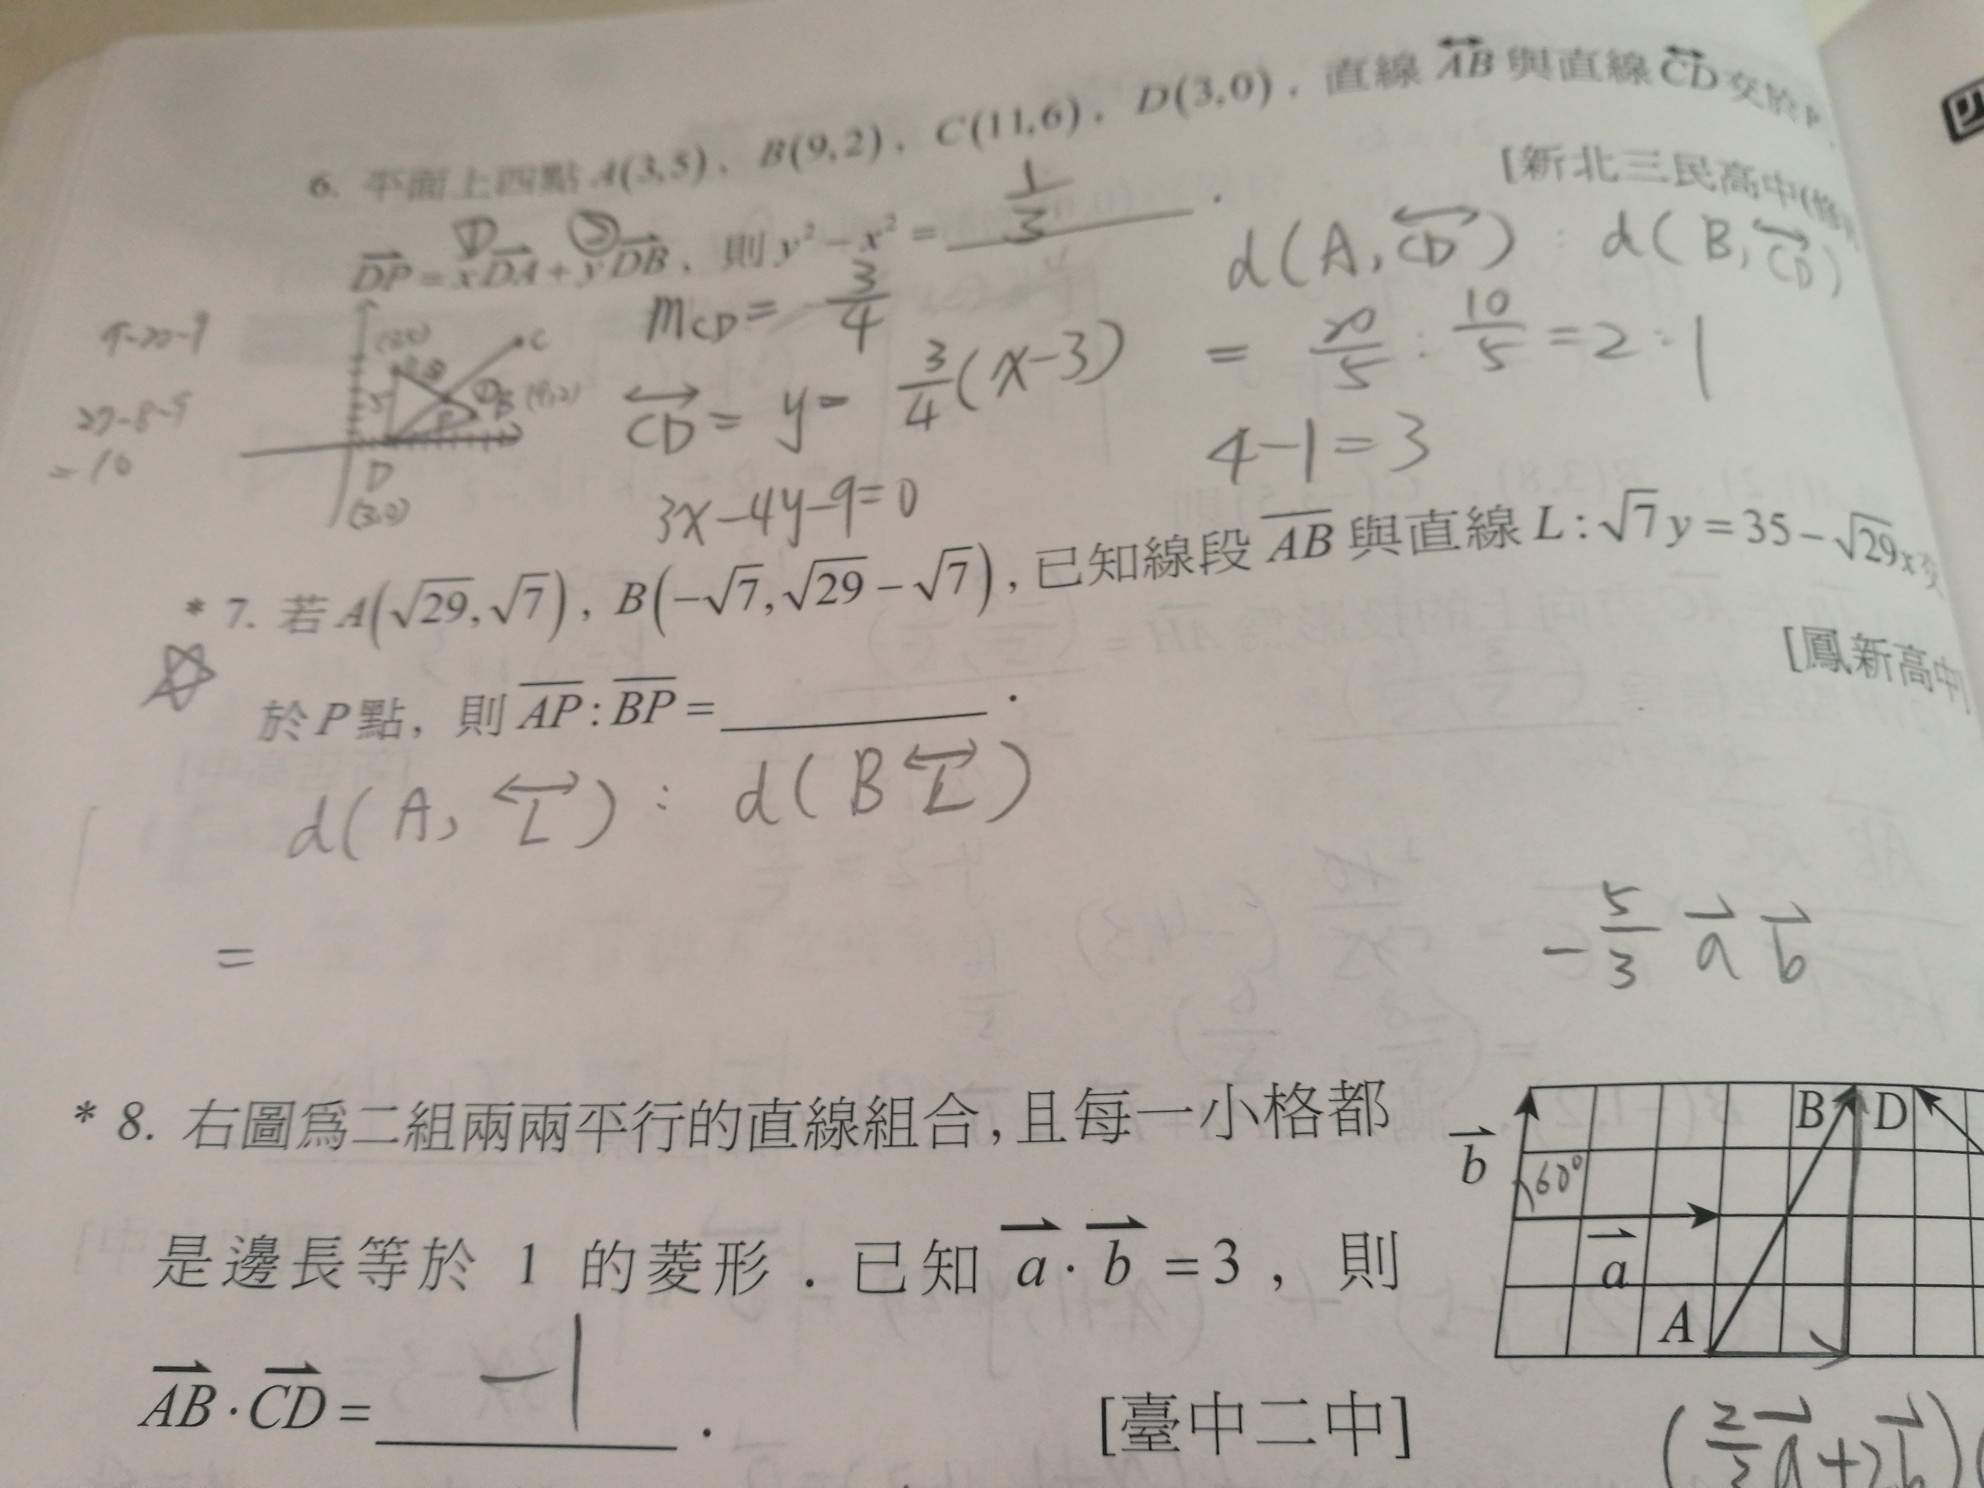 6. 平面上四點 A(3,5)、B(9,2)、C(11,6)、D(3,0),直線 AB 與直線 CD 交於P
[新北三民高中(修)
① ②
DP = xDA + yDB,則 y² − x² = 1/3 .
d(A, CD) : d(B, CD)
m_CD = 3/4
= 20/5 : 10/5 = 2 : 1
CD = y = 3/4 (x−3)
4−1=3
3x−4y−9=0
9-20-9
27-8-9
=10
C
B (9,2)
P
D
(3,0)
* 7. 若 A(√29, √7),B(−√7, √29 − √7),已知線段 AB 與直線 L : √7 y = 35 − √29 x 交
[鳳新高中]
於 P 點,則 AP : BP = ________ .
d(A, L) : d(B L)
=
− 5/3 a b
* 8. 右圖為二組兩兩平行的直線組合,且每一小格都
是邊長等於 1 的菱形.已知 a · b = 3 , 則
AB · CD = −1 .
[臺中二中]
B D
b
60°
a
A